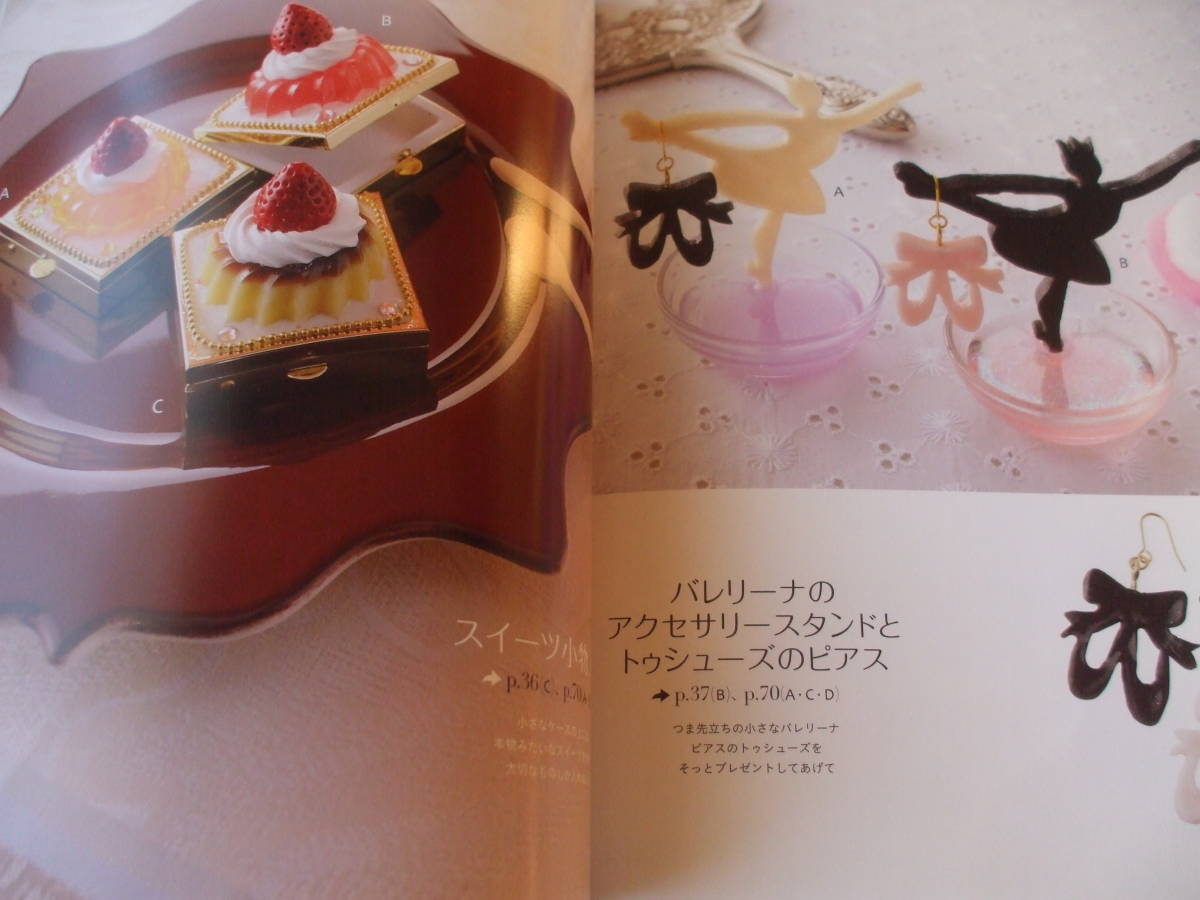 B
A
C
スイーツ小物
➔ p.36(C)、p.70(A
小さなケースの上に
本物みたいなスイーツ
大切なものしか入れ
A
B
バレリーナの
アクセサリースタンドと
トゥシューズのピアス
➔ p.37(B)、p.70(A・C・D)
つま先立ちの小さなバレリーナ
ピアスのトゥシューズを
そっとプレゼントしてあげて